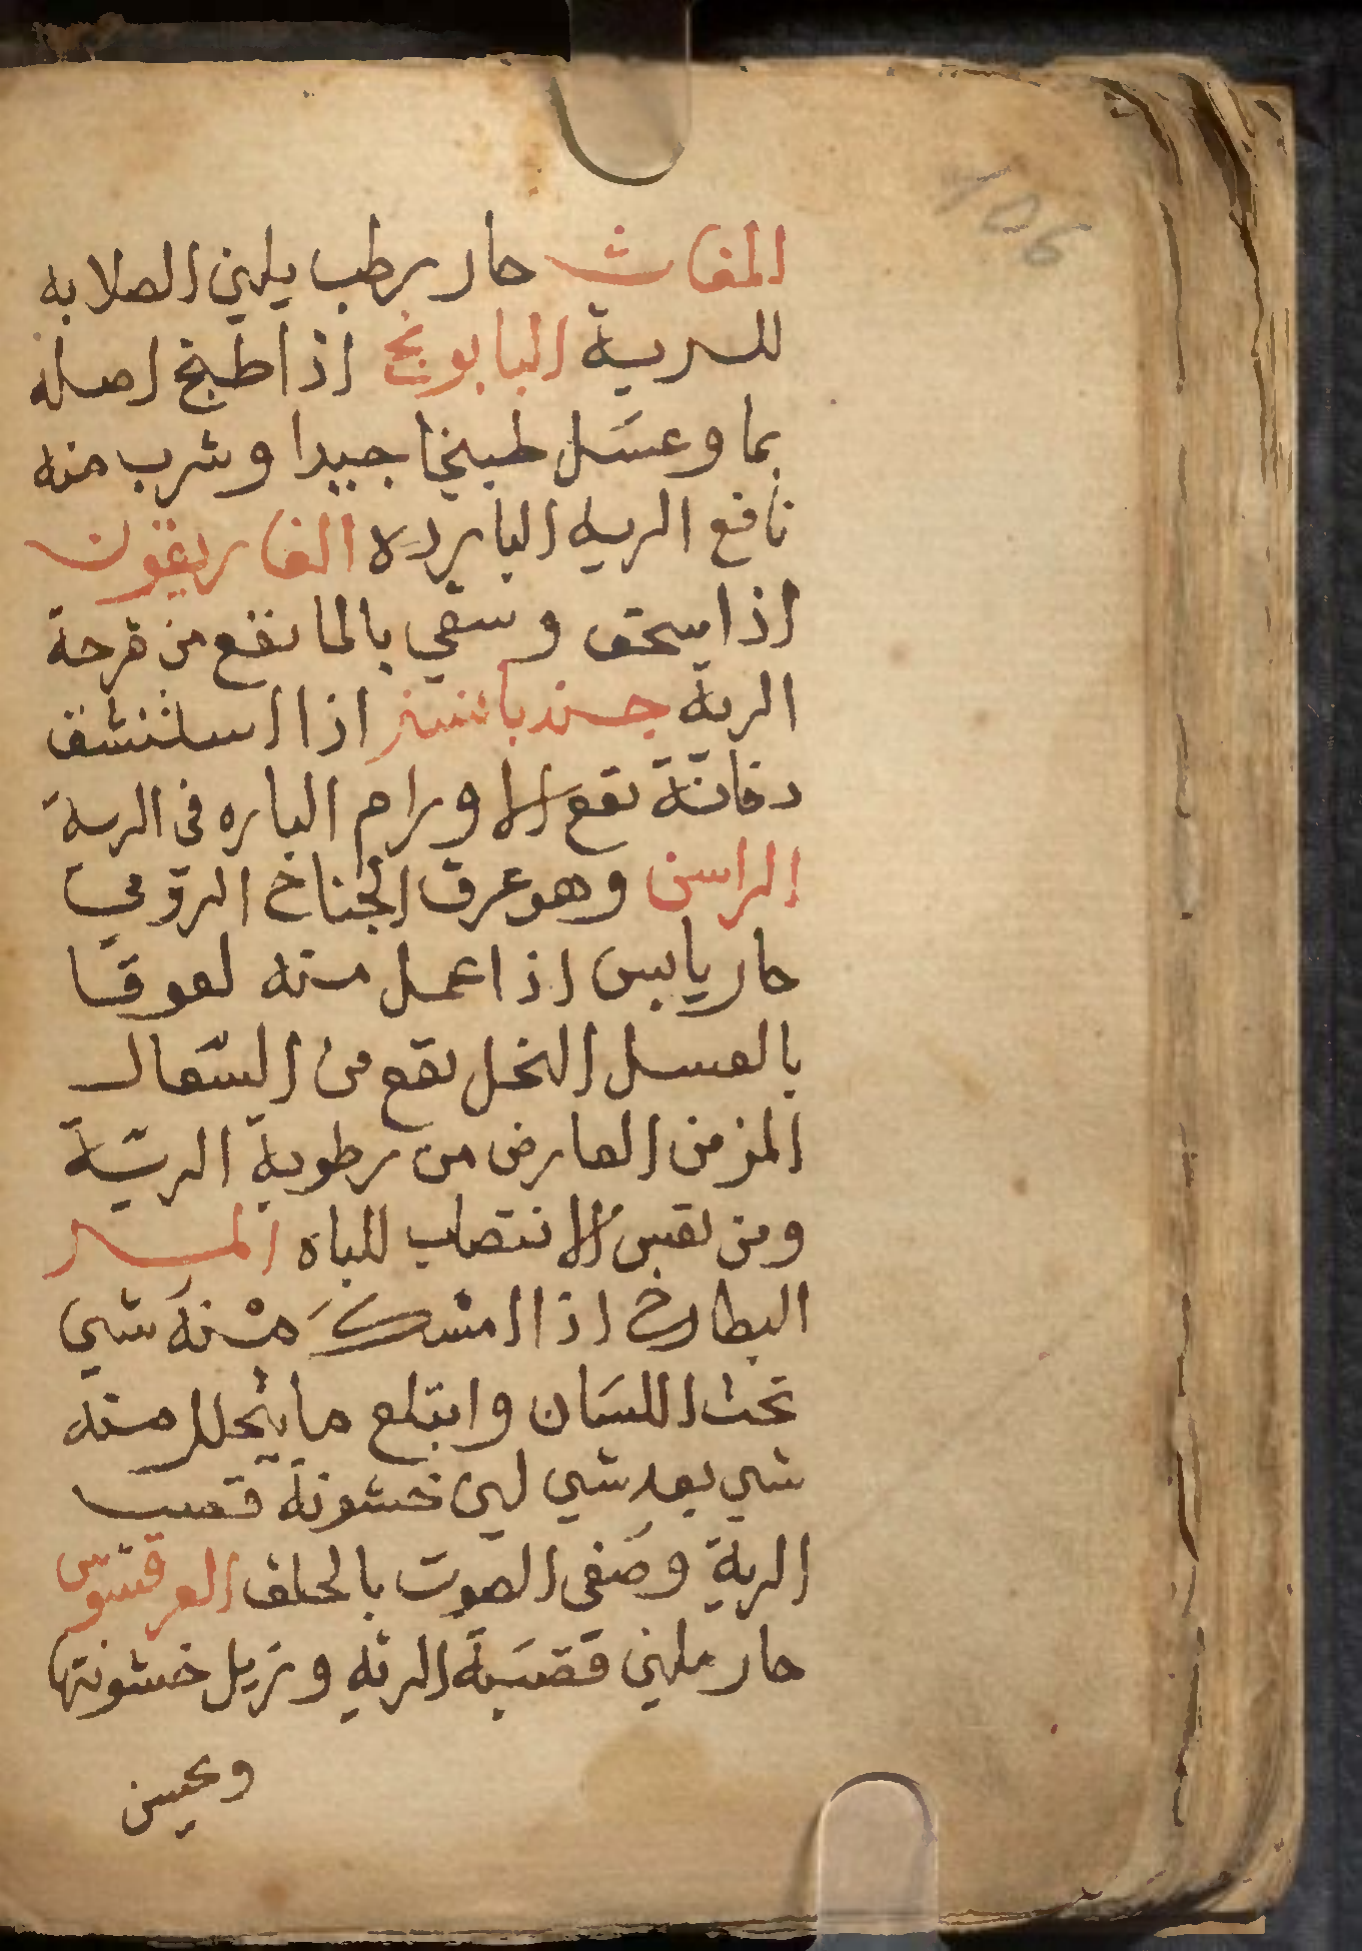 106
المغاث حار رطب يلين الصلابه
للرية البابونج اذا طبخ اصله
بما وعسل طبيخا جيدا وشرب منه
نافع الريه البارده الغاريقون
اذا سحق وسقي بالما نفع من قرحة
الرية اذا استنشق
دخانة نفع الاورام البارده في الرية
الراسن وهو عرق الجناح الرومي
حار يابس اذا عمل منه لعوقا
بالعسل النحل نفع من السعال
المزمن العارض من رطوبة الرية
ومن نفس الانتصاب للباه
البطارخ اذا امسك منه شي
تحت اللسان وابتلع ما يتحلل منه
شي بعد شي لين خشونة قصب
الرية وصفى الصوت بالحلق
حار ملين قصبة الريه وتزيل خشونتها
ويحسن